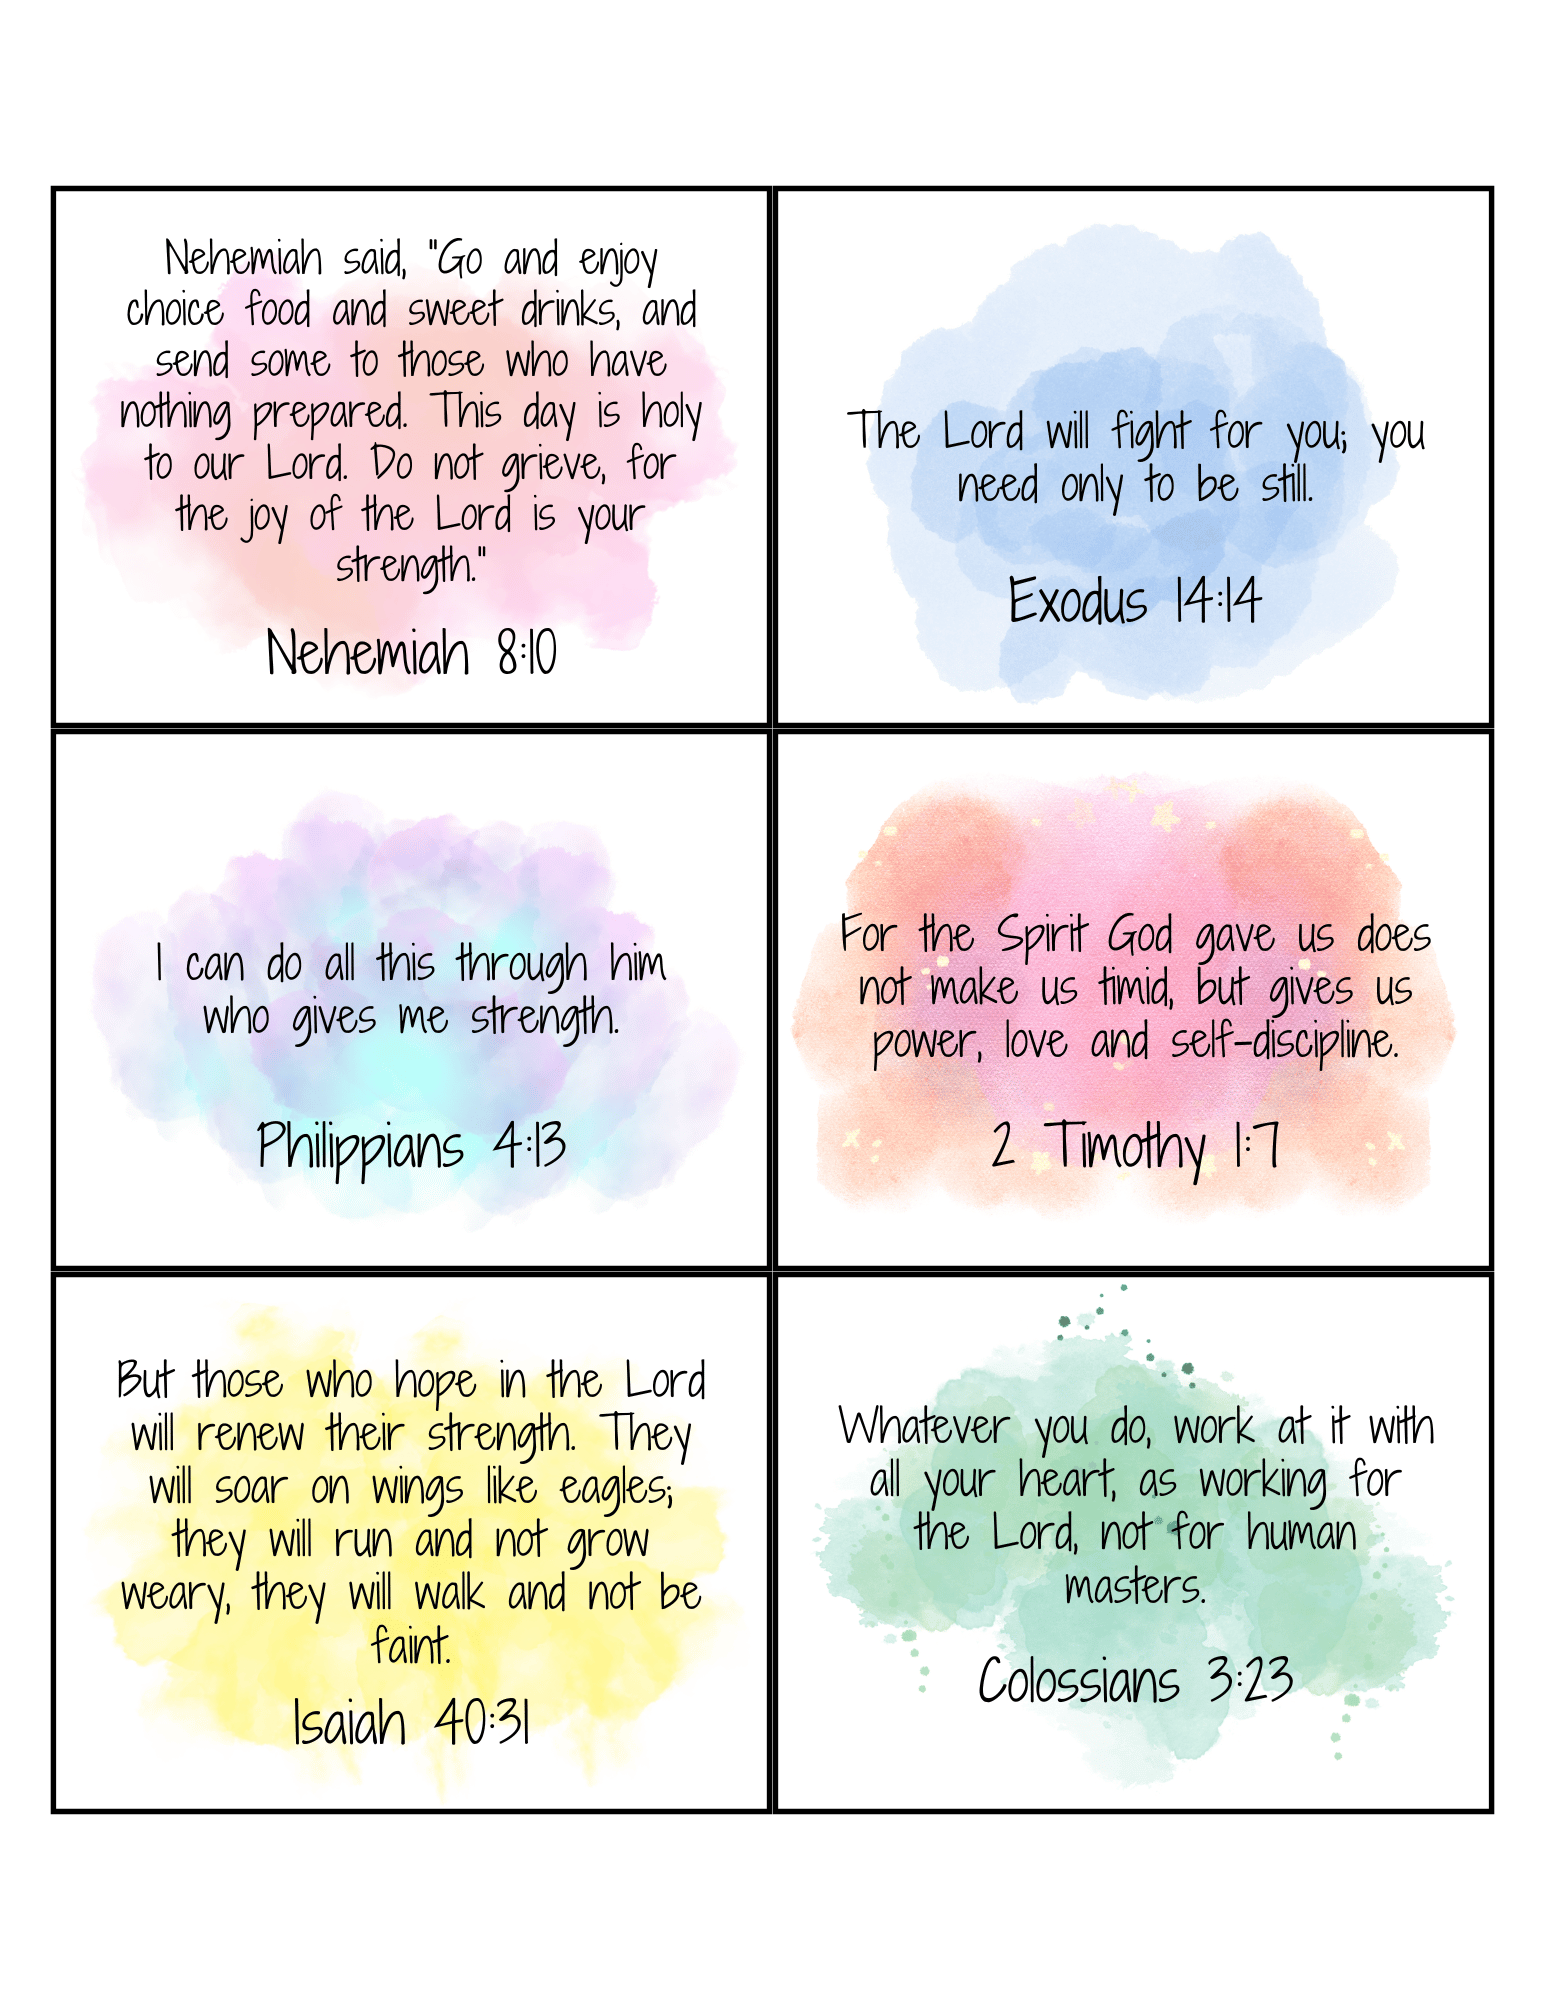 Nehemiah said, "Go and enjoy
choice food and sweet drinks, and
send some to those who have
nothing prepared. This day is holy
to our Lord. Do not grieve, for
the joy of the Lord is your
strength."
Nehemiah 8:10
The Lord will fight for you; you
need only to be still.
Exodus 14:14
I can do all this through him
who gives me strength.
Philippians 4:13
For the Spirit God gave us does
not make us timid, but gives us
power, love and self-discipline.
2 Timothy 1:7
But those who hope in the Lord
will renew their strength. They
will soar on wings like eagles;
they will run and not grow
weary, they will walk and not be
faint.
Isaiah 40:31
Whatever you do, work at it with
all your heart, as working for
the Lord, not for human
masters.
Colossians 3:23